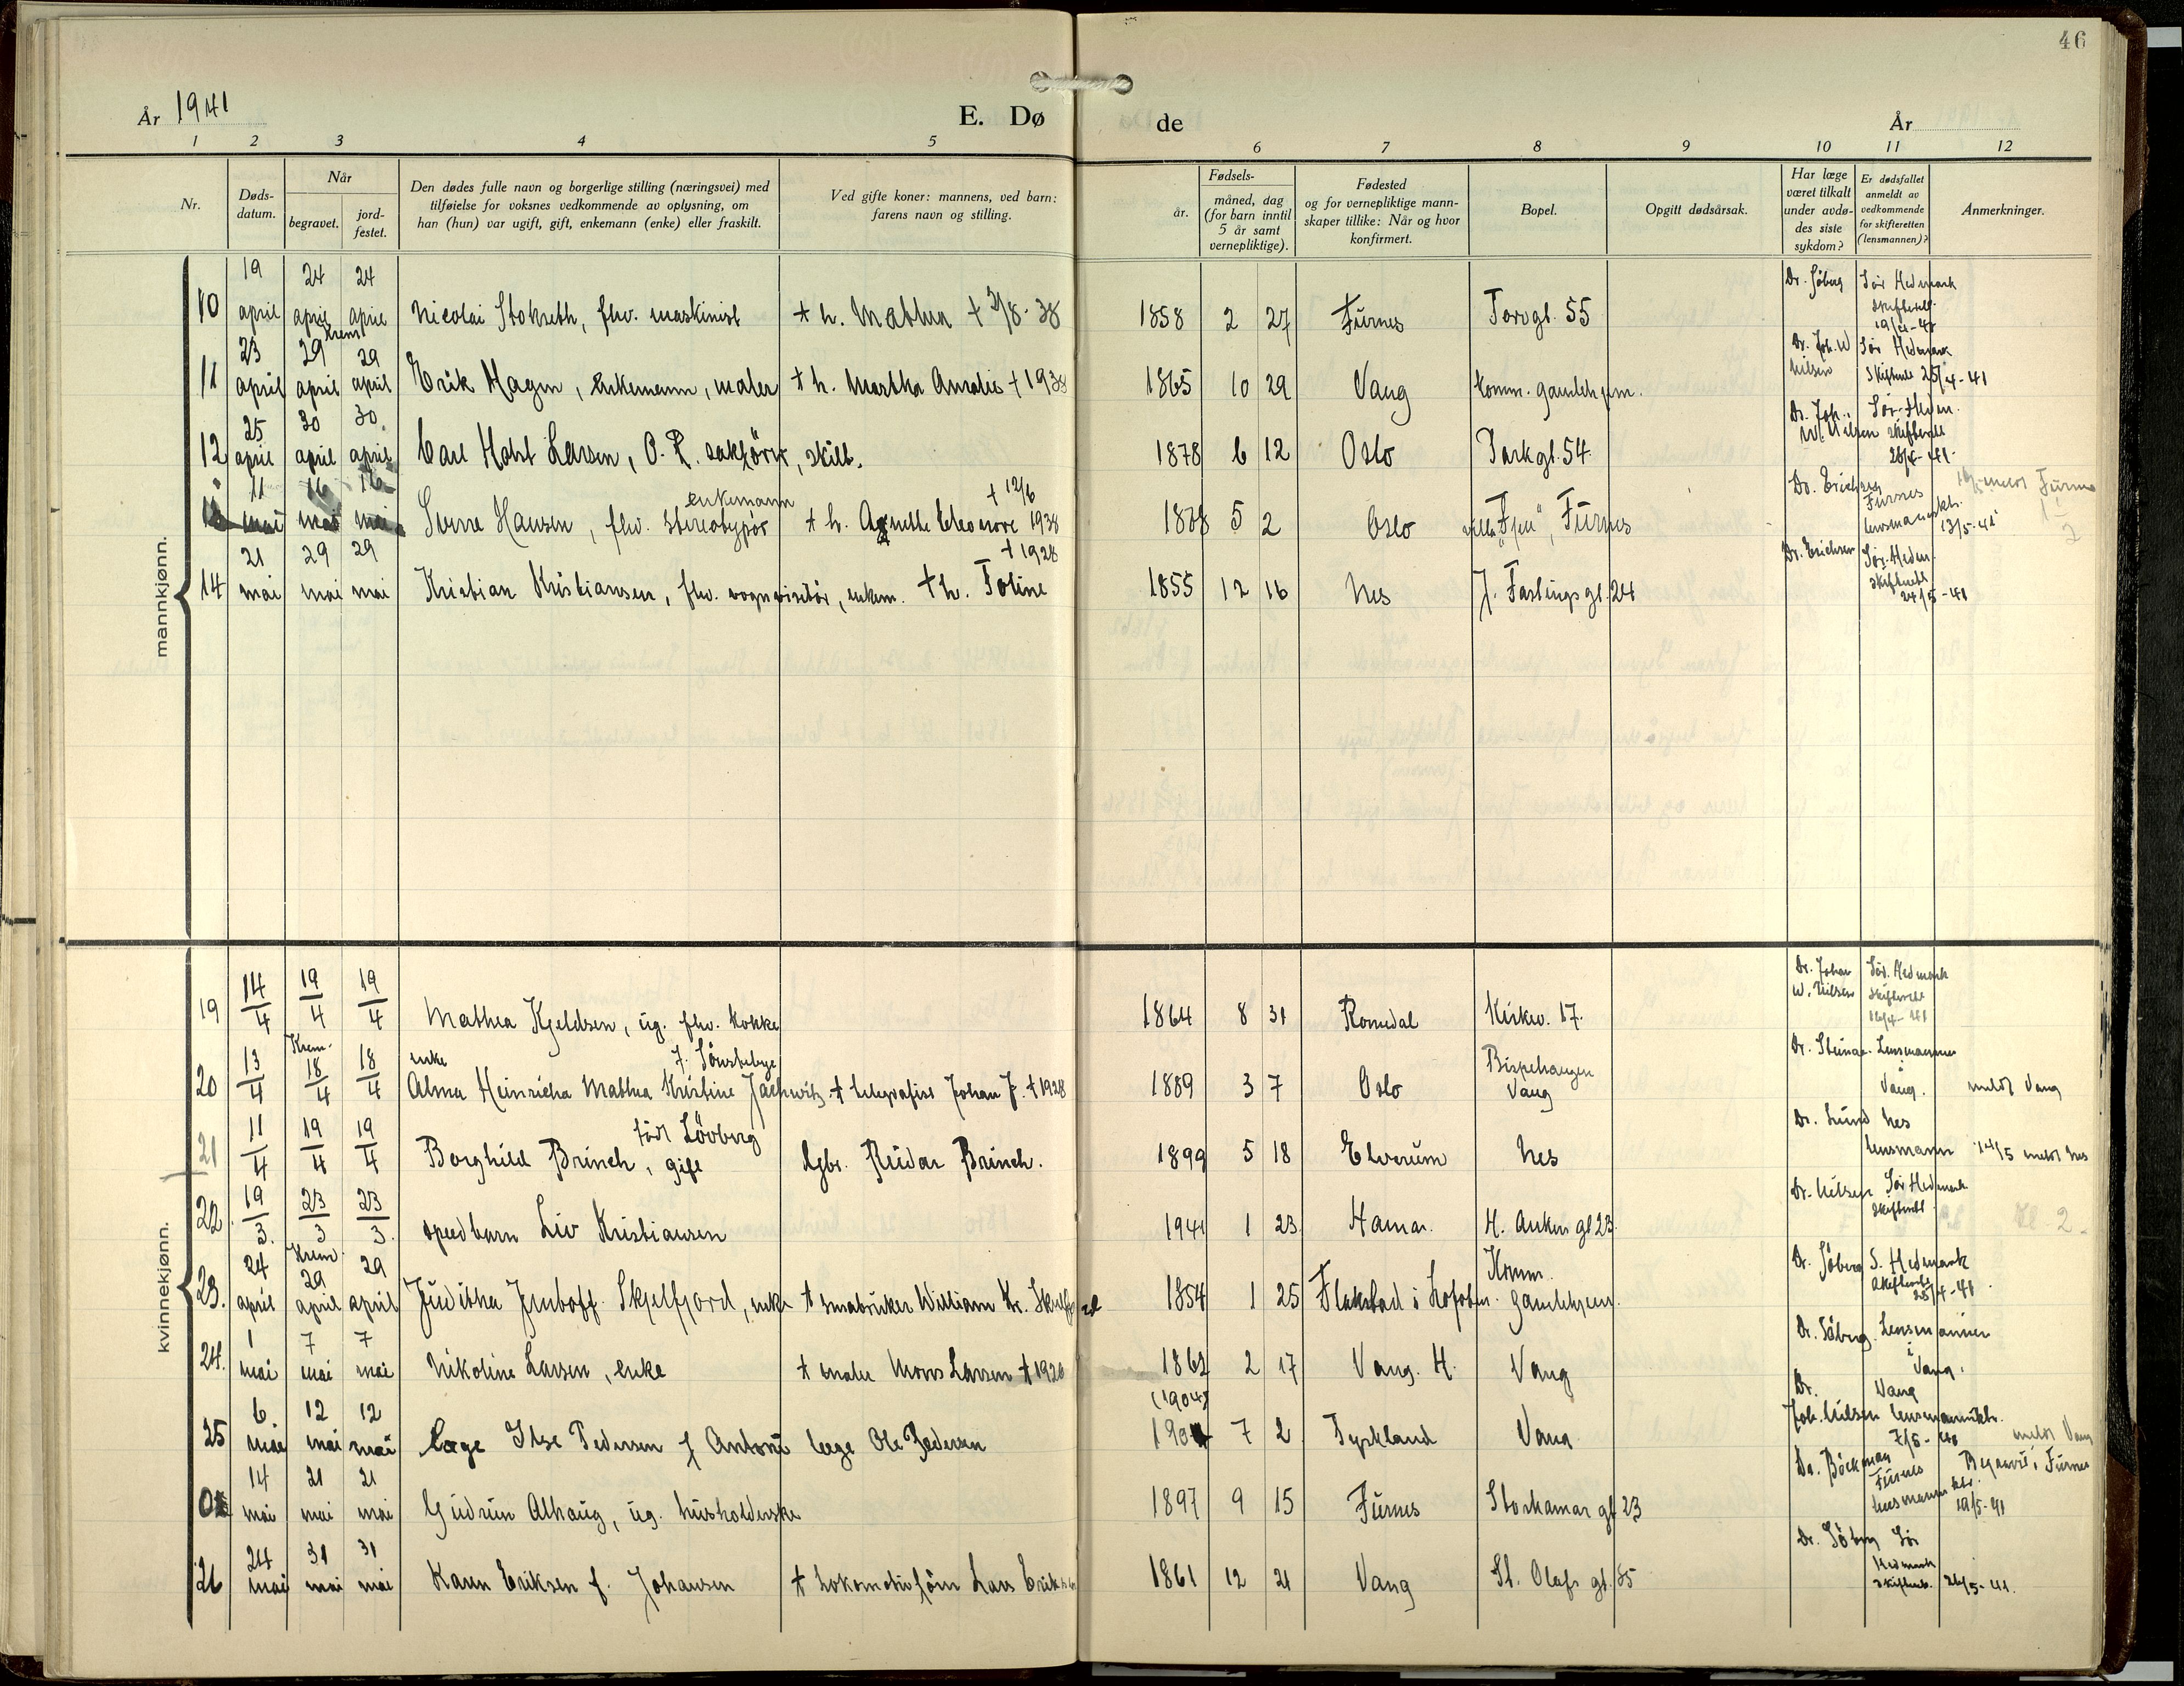 46
År 1941
E. Dø de
År
1 2 3 4 5 6 7 8 9 10 11 12
Nr.
Døds-
datum.
Når
begravet.
jord-
festet.
Den dødes fulle navn og borgerlige stilling (næringsvei) med
tilføielse for voksnes vedkommende av oplysning, om
han (hun) var ugift, gift, enkemann (enke) eller fraskilt.
Ved gifte koner: mannens, ved barn:
farens navn og stilling.
Fødsels-
år.
måned, dag
(for barn inntil
5 år samt
vernepliktige).
Fødested
og for vernepliktige mann-
skaper tillike: Når og hvor
konfirmert.
Bopel.
Opgitt dødsårsak.
Har læge
været tilkalt
under avdø-
des siste
sykdom?
Er dødsfallet
anmeldt av
vedkommende
for skifteretten
(lensmannen)?
Anmerkninger.
mannkjønn.
19 24 24 Dr. Søberg Sør Hedmark
10 april april april Nicolai Stokseth, fhv. maskinist + h. Mathea + 3/8-38 1858 2 27 Furnes Torvgt. 55 skifterett
krem 19/4-41
23 29 29 Dr. Joh. W Sør Hedmark
11 april april april Erik Hagen, enkemann, maler + h. Martha Amalie + 1938 1865 10 29 Vang Komm. gamlehjem. Nilsen Skifterett 25/4-41
25 30 30. Dr. Joh. Sør-Hedm.
12 april april april Carl Holst Larsen, O. R. sakfører, skilt. 1878 6 12 Oslo Parkgt. 54. W. Nilsen skifterett
26/4-41.
11 16 16 enkemann + 12/6 Dr. Erichsen 19/5 meldt Furnes
mai mai mai Hansen, fhv. stereotypør + h. Agnethe Eleonore 1938 1868 5 2 Oslo villa "Fjell", Furnes Furnes lensmannsktr. 13/5-41
21 29 29 + 1928 Dr. Erichsen Sør-Hedm.
14 mai mai mai Kristian Kristiansen, fhv. vognvisitør, enkem. + h. Toline 1855 12 16 Nes J. Fastings gt. 24 skifterett
24/5-41
kvinnekjønn.
19 14/4 19/4 19/4 Mathea Kjeldsen, ug. fhv. kokke 1864 8 31 Romedal Kirkev. 17. Dr. Johan W. Nilsen Sør. Hedmark skifterett 16/4-41
Krem. enke f. Sønsteby Bispehaugen Dr. Steinar Lensmannen
20 13/4 18/4 18/4 Alma Heinricha Mathea Kristine + telegrafist Johan J. + 1928 1889 3 7 Oslo Vang i Vang. meldt Vang
født Løvberg Dr. Lund Nes
21 11/4 19/4 19/4 Borghild Brinch, gift Gbr. Reidar Brinch. 1899 5 18 Elverum Nes lensmann 14/5 meldt Nes
22 19/3 23/3 23/3 spedbarn Liv Kristiansen 1941 1 23 Hamar. H. Ankers gt 23 Dr. Nilsen Sør Hedmark skifterett
24 Krem. 29 29 Komm. Dr. Søberg S. Hedmark
23. april april april Juditha Imhoff Skjelfjord, enke + småbruker William Kr. Skjelfjord 1854 1 25 Flakstad i Lofoten. gamlehjem. skifterett 25/4-41
1 7 7 Dr. Søberg Lensmannen
24. mai mai mai Nikoline Larsen, enke + maler Mons Larsen + 1920 1862 2 17 Vang. H. Vang i Vang.
6. 12 12 (1904) Dr. Vang
25 mai mai mai læge Ilse Pedersen f Antoni læge Ole Pedersen 1904 7 2 Tyskland Vang Joh. Nilsen lensmannsktr. 7/5-41 meldt Vang
14 21 21 Dr. Böckman Furnes Begravet i Furnes
mai mai mai Gudrun Alhaug, ug. husholderske 1897 9 15 Furnes Storhamar gt 23 lensmannsktr. 19/5-41
24 31 31 Dr. Søberg Sør
26 mai mai mai Karen Eriksen f. Johansen + Lokomotivfører Lars Eriksen 1861 12 21 Vang St. Olafs gt. 85 Hedmark skifterett. 26/5-41.